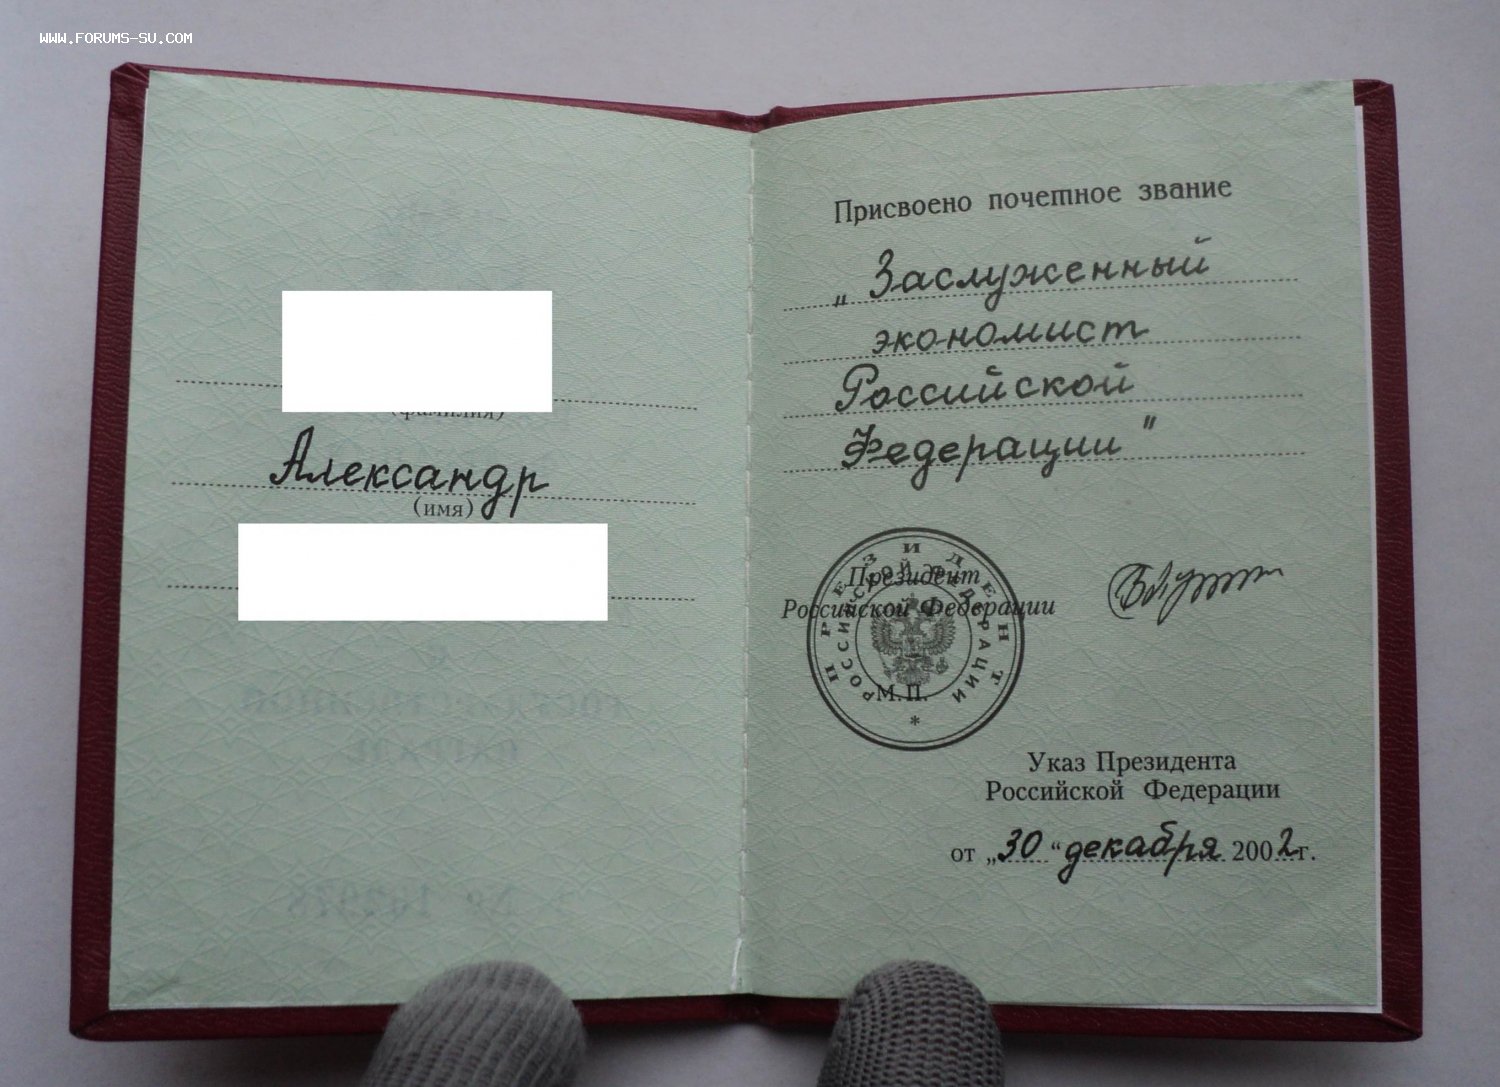 WWW.FORUMS-SU.COM
(фамилия)
Александр
(имя)
Присвоено почетное звание
„Заслуженный
экономист
Российской
Федерации"
ПРЕЗИДЕНТ
РОССИЙСКОЙ ФЕДЕРАЦИИ
Президент
Российской Федерации
М.П.
*
Указ Президента
Российской Федерации
от „30“ декабря 2002г.